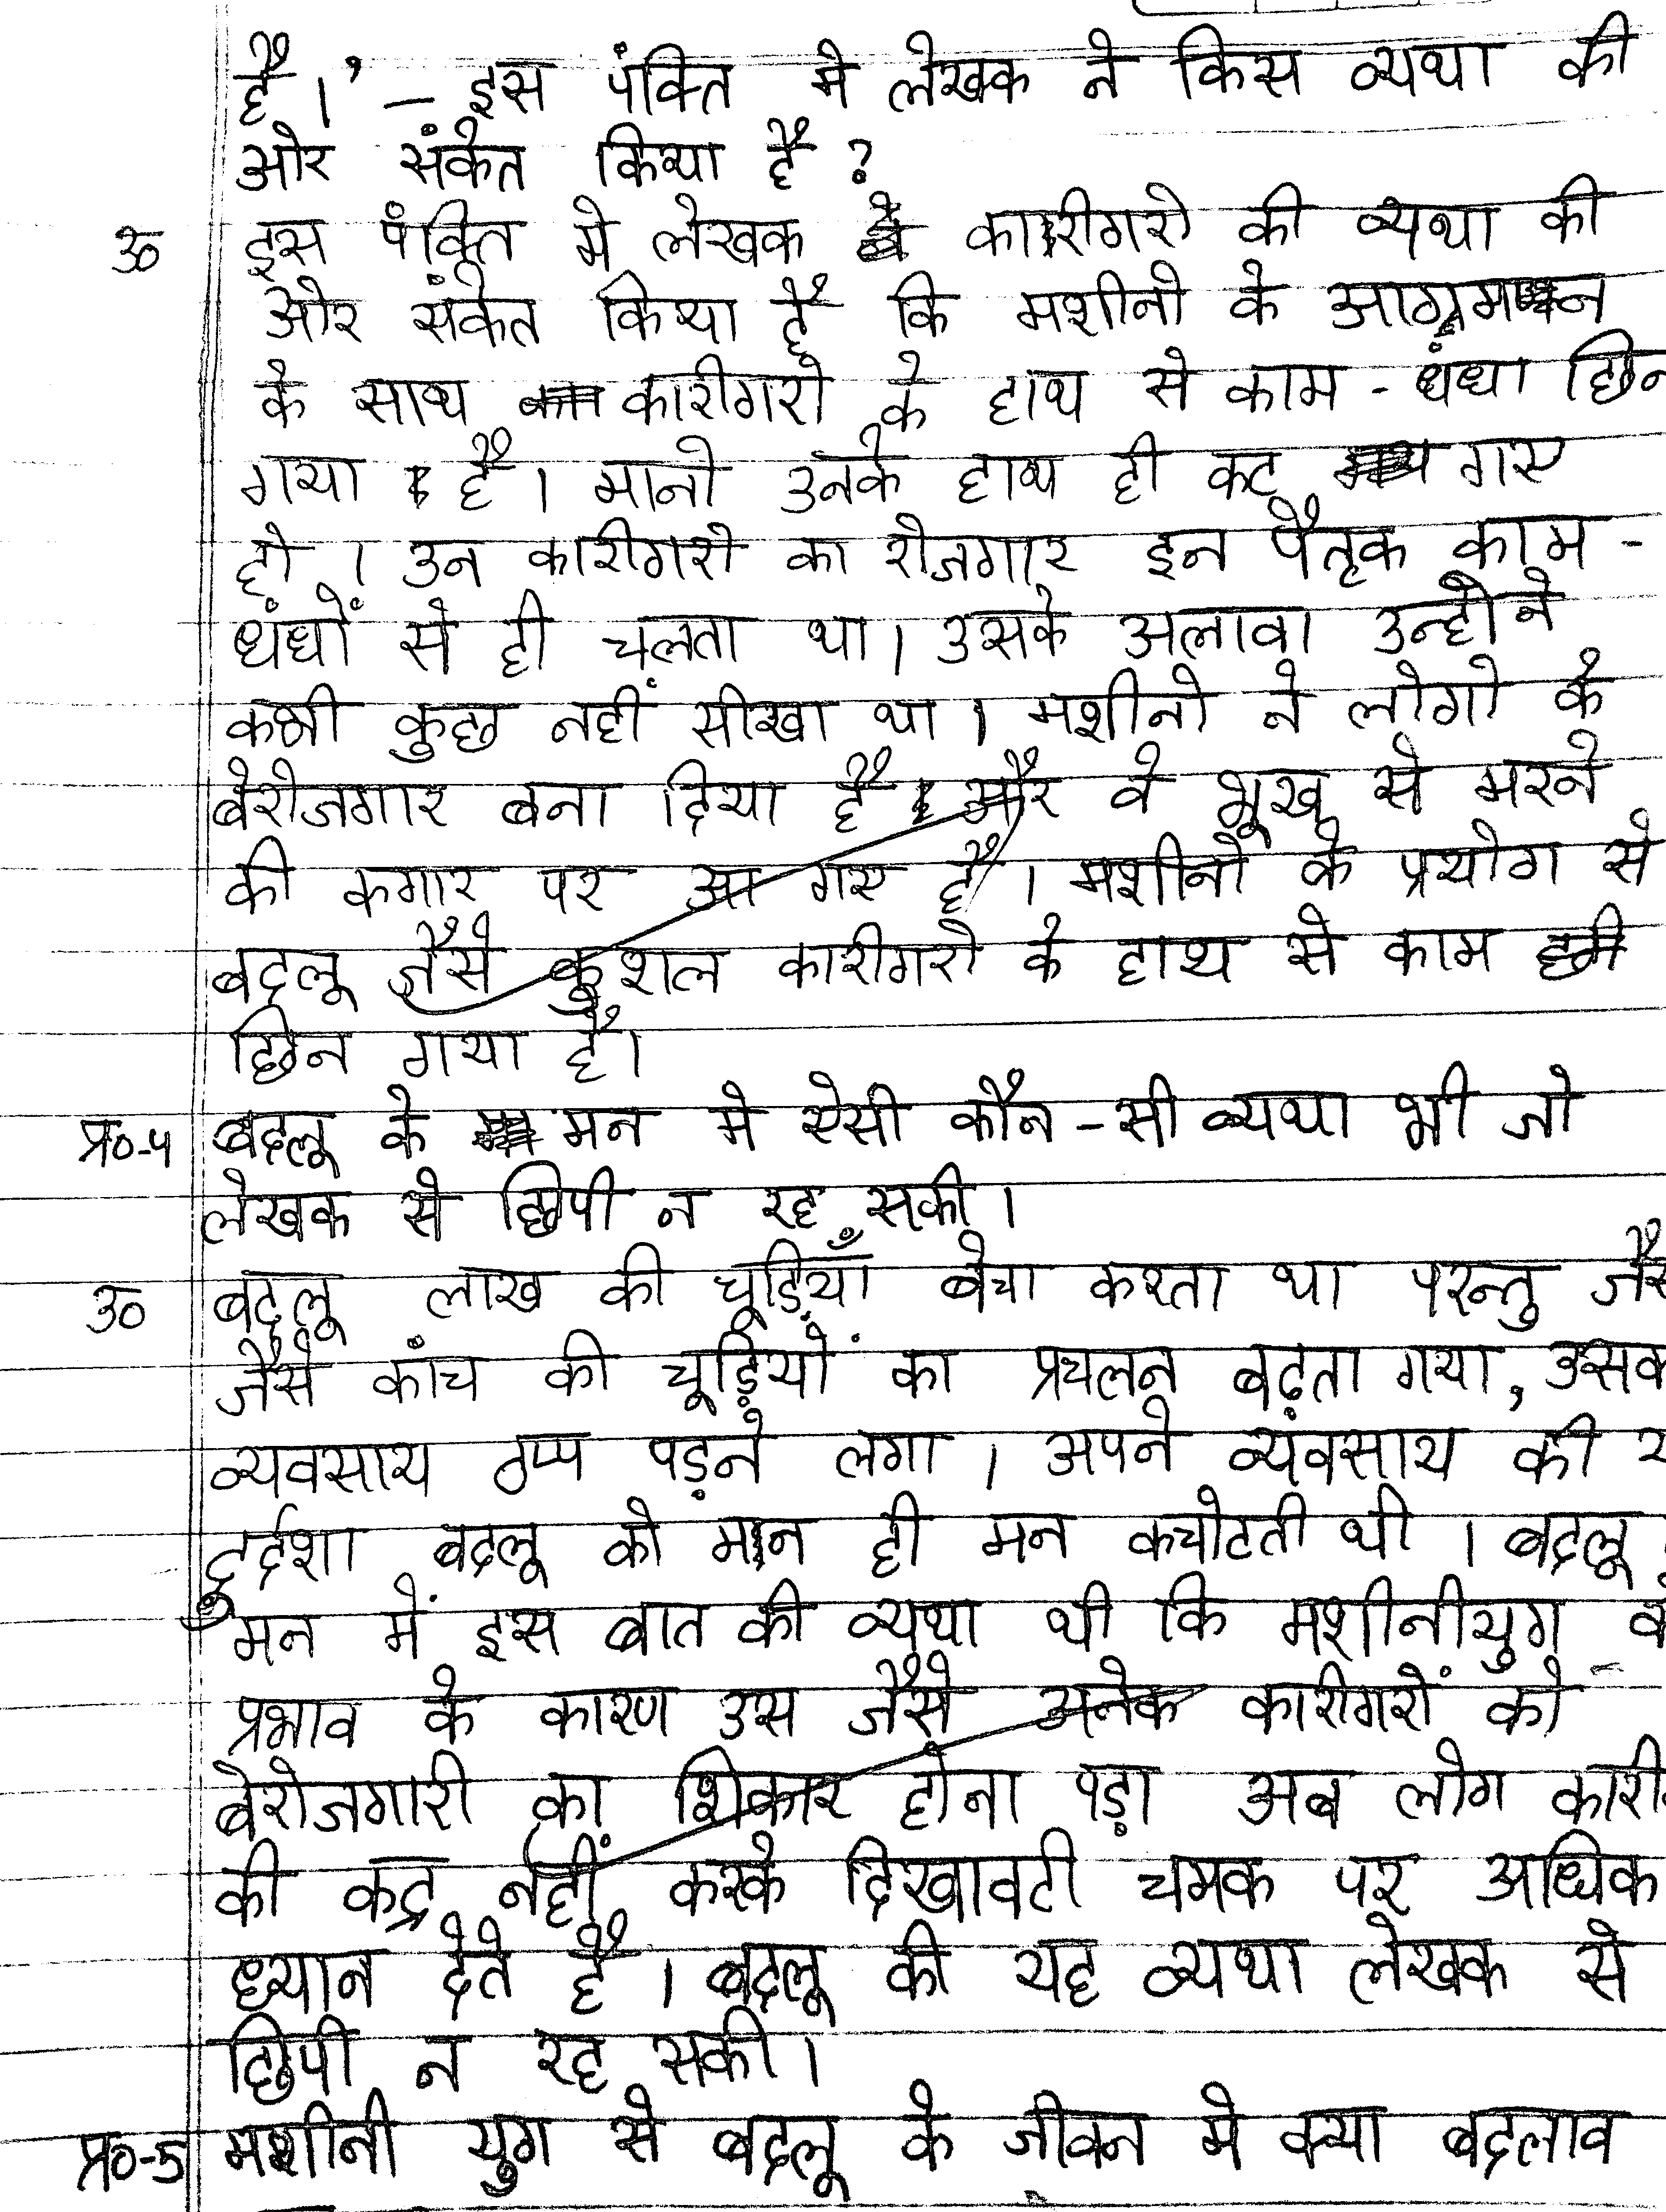 है।' – इस पंक्ति मे लेखक ने किस व्यथा की
ओर संकेत किया है ?
उ० इस पंक्ति मे लेखक कारीगरो की व्यथा की
ओर संकेत किया है कि मशीनो के आगमन
के साथ कारीगरो के हाथ से काम - धंधा छिन
गया है। मानो उनके हाथ ही कट गए
हो । उन कारीगरो का रोजगार इन पैतृक काम -
धंधों से ही चलता था। उसके अलावा उन्होने
कभी कुछ नहीं सीखा था । मशीनो ने लोगो के
बेरोजगार बना दिया है और वे भूख से मरने
की कगार पर आ गए है । मशीनो के प्रयोग से
बदलू जैसे कुशल कारीगरो के हाथ से काम
छिन गया है।
प्र०-4 बदलू के मन मे ऐसी कौन - सी व्यथा भी जो
लेखक से छिपी न रह सकी ।
उ० बदलू लाख की चूड़ियाँ बेचा करता था परन्तु जैसे
जैसे कांच की चूड़ियों का प्रचलन बढ़ता गया, उसक
व्यवसाय ठप्प पड़ने लगा । अपने व्यंवसाय की
दुर्दशा बदलू को मन ही मन कचोटती थी । बदलू
मन में इस बात की व्यथा थी कि मशीनीयुग के
प्रभाव के कारण उस जैसे अनेक कारीगरों को
बेरोजगारी का शिकार होना पड़ा अब लोग कारी
की कद्र नहीं करके दिखावटी चमक पर अधिक
ध्यान देते है । बदलू की यह व्यथा लेखक से
छिपी न रह सकी ।
प्र०-5 मशीनी युग से बदलू के जीवन मे क्या बदलाव